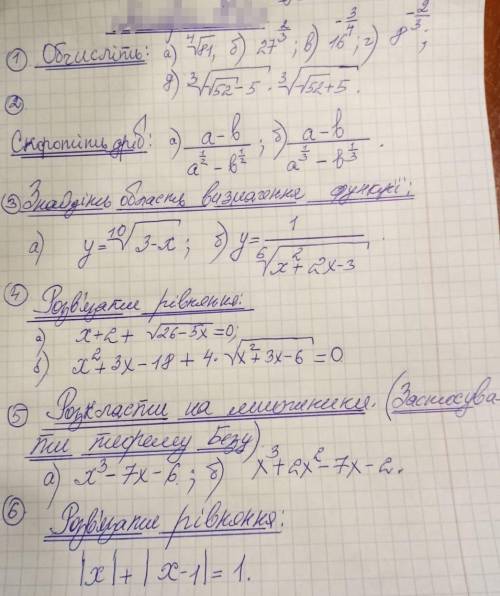 ① Обчисліть: а) ∜81, б) 27^(2/3); в) 16^(-3/4); г) 8^(-2/3);
д) ∛(√52 - 5) · ∛(√52 + 5).
②
Скоротіть дріб: а) (a - b)/(a^(1/2) - b^(1/2)); б) (a - b)/(a^(1/3) - b^(1/3)).
③ Знайдіть область визначення функції:
а) y = ¹⁰√(3-x); б) y = 1/⁶√(x²+2x-3).
④ Розв'язати рівняння:
а) x+2+√(26-5x)=0;
б) x²+3x-18+4·√(x²+3x-6)=0
⑤ Розкласти на множники. (Застосува
ти теорему Безу)
а) x³-7x-6; б) x³+2x²-7x-2.
⑥ Розв'язати рівняння:
|x|+|x-1|=1.